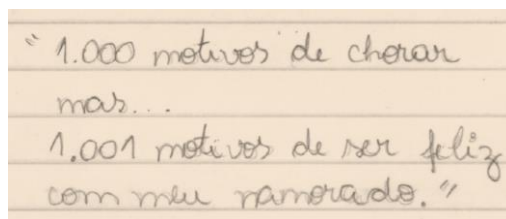 "1.000 motivos de chorar
mas...
1.001 motivos de ser feliz
com meu namorado."